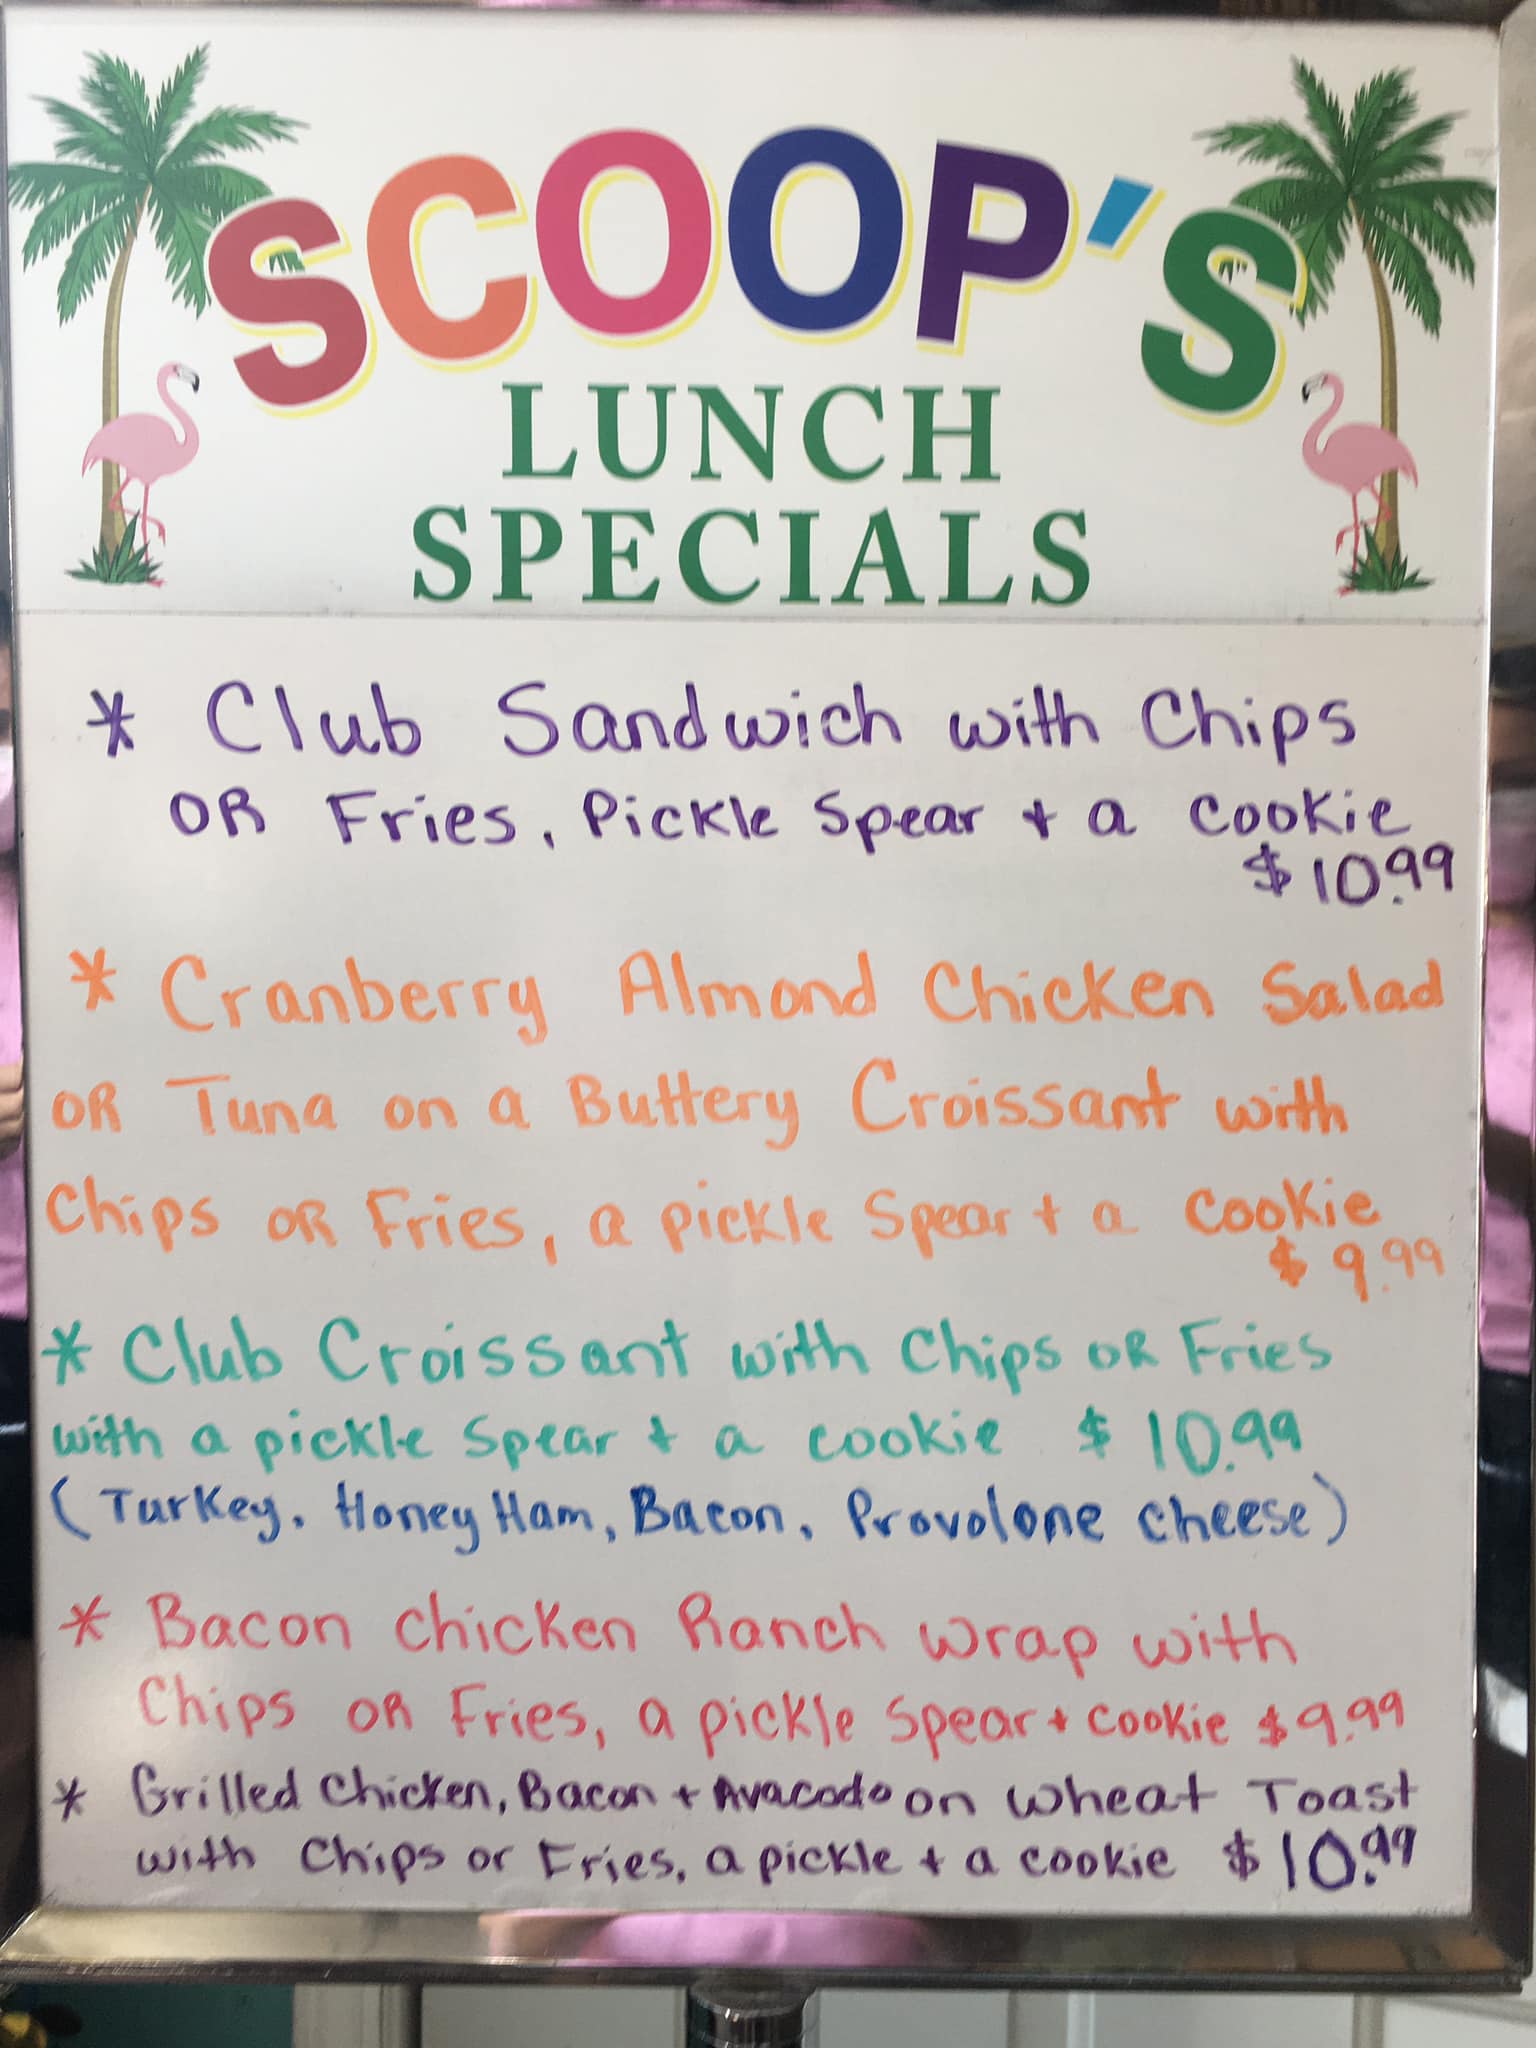 SCOOP'S
LUNCH
SPECIALS
* Club Sandwich with Chips
OR Fries, Pickle Spear + a Cookie
$10.99
* Cranberry Almond Chicken Salad
OR Tuna on a Buttery Croissant with
Chips OR Fries, a pickle Spear + a Cookie
$9.99
* Club Croissant with Chips OR Fries
with a pickle Spear + a cookie $10.99
(Turkey, Honey Ham, Bacon, Provolone cheese)
* Bacon chicken Ranch wrap with
Chips OR Fries, a pickle Spear + cookie $9.99
* Grilled Chicken, Bacon + Avacado on wheat Toast
with Chips or Fries, a pickle + a cookie $10.99